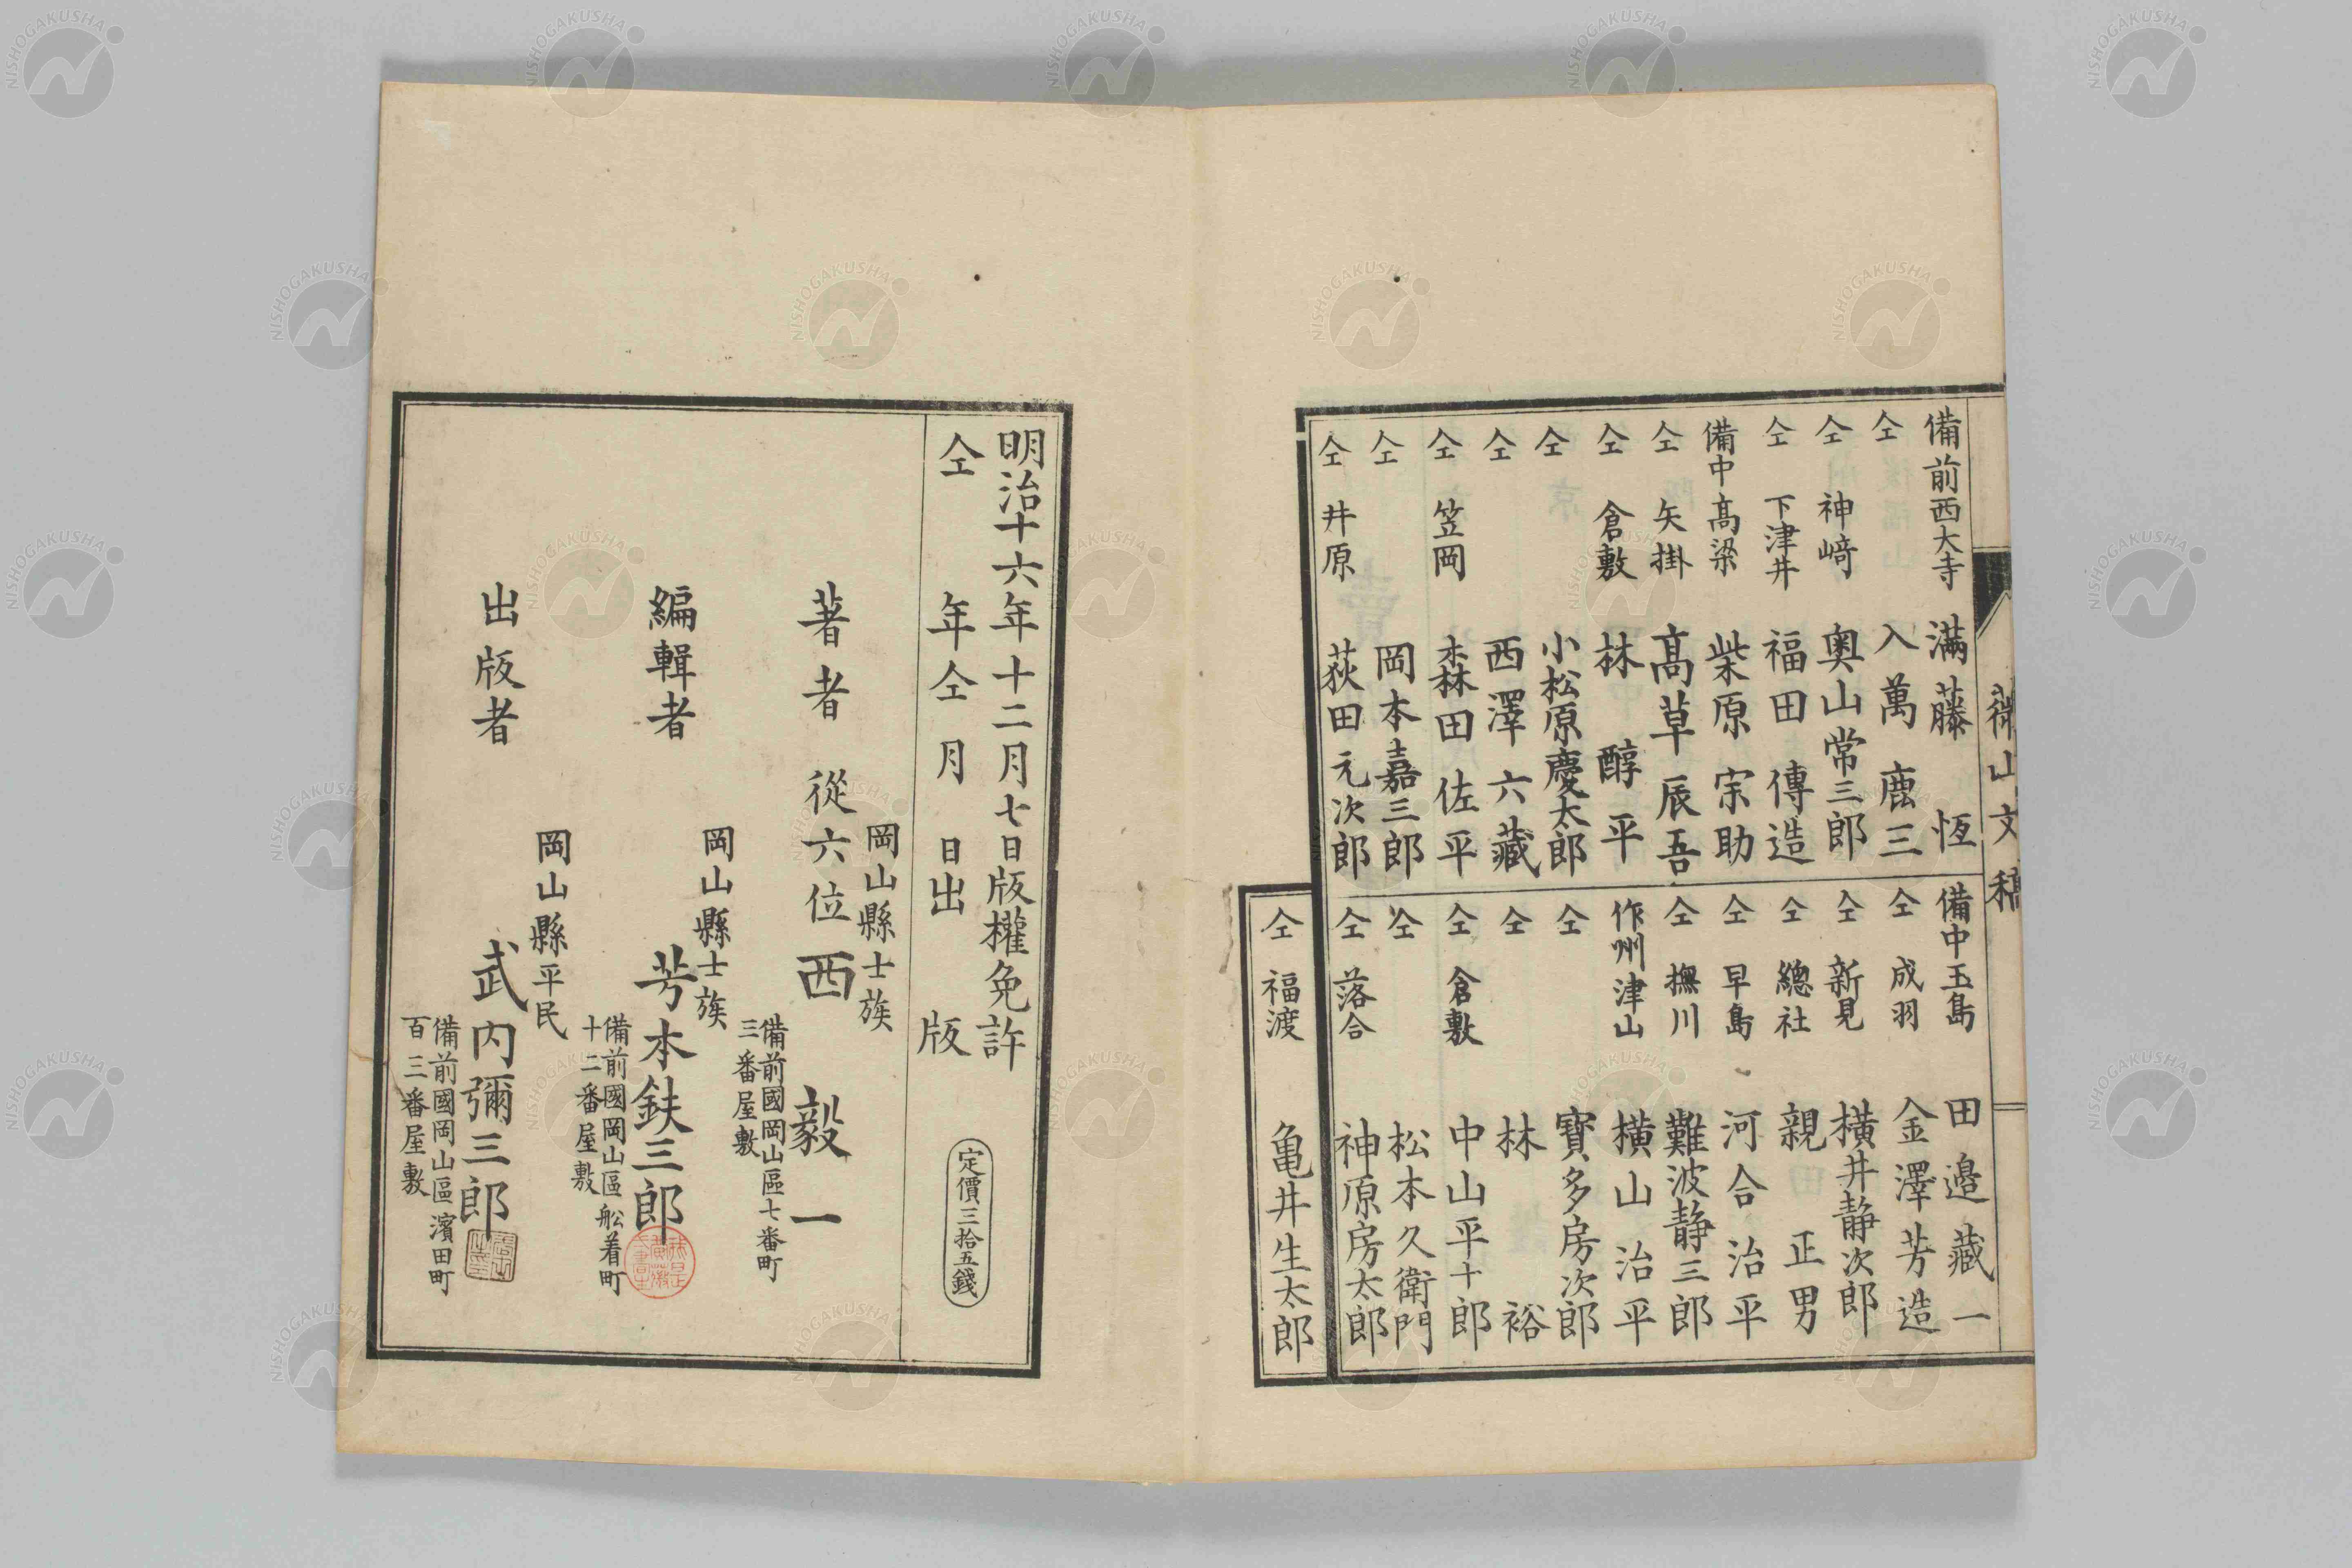 薇山文稿
備前西大寺 滿藤恆
仝 入萬鹿三
仝 神﨑 奧山常三郎
仝 下津井 福田傳造
備中髙梁 柴原宗助
仝 矢掛 髙草辰吾
仝 倉敷 林醇平
仝 小松原慶太郎
仝 西澤六藏
仝 笠岡 森田佐平
仝 岡本嘉三郎
仝 井原 荻田元次郎
備中玉島 田邉藏一
仝 成羽 金澤芳造
仝 新見 橫井静次郎
仝 總社 親正男
仝 早島 河合治平
仝 撫川 難波静三郎
作州津山 橫山治平
仝 寶多房次郎
仝 林裕
仝 倉敷 中山平十郎
仝 松本久衛門
仝 落合 神原房太郎
仝 福渡 亀井生太郎
明治十六年十二月七日版權免許
仝年仝月 日出版
定價三拾五錢
岡山縣士族
著者 從六位 西毅一
備前國岡山區七番町
三番屋敷
岡山縣士族
編輯者 芳本鉄三郎
備前國岡山區舩着町
十二番屋敷
岡山縣平民
出版者 武内彌三郎
備前國岡山區濱田町
百三番屋敷
NISHOGAKUSHA